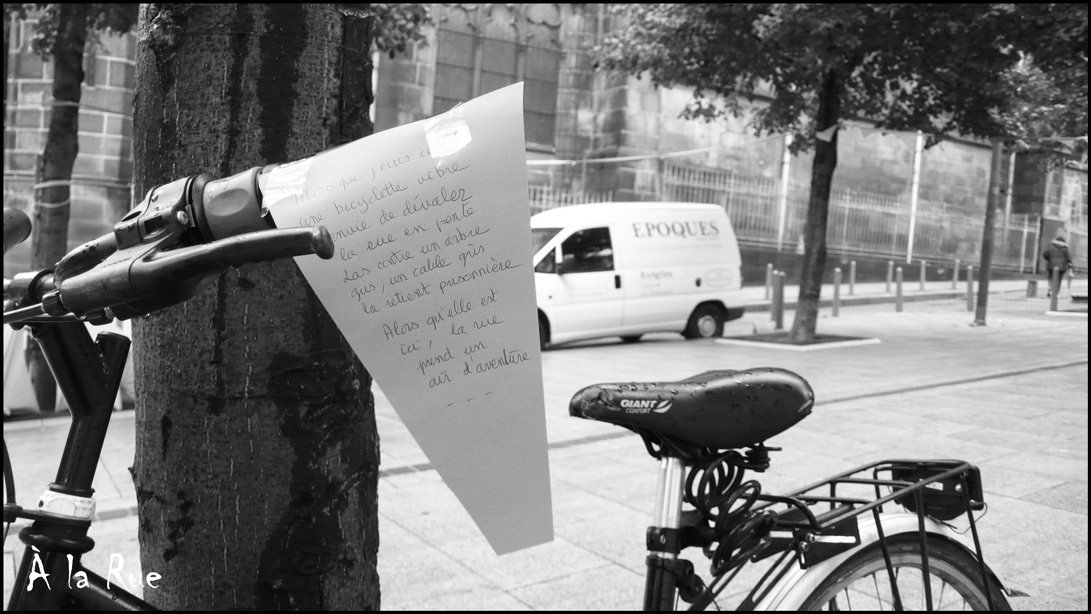 Alors que j'écris ce
une bicyclette vibre
envie de dévaler
la rue en pente
Las contre un arbre
gris, un cable gris
la retient prisonnière
Alors qu'elle est
ici, la rue
prend un
air d'aventure
- - -
EPOQUES
GIANT
COMFORT
À la Rue